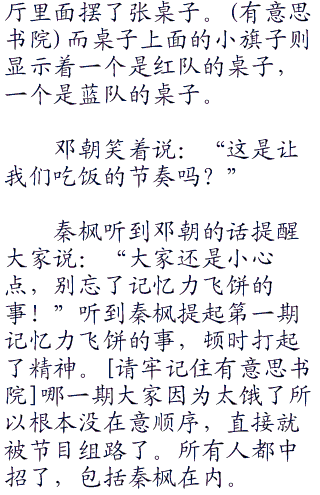 厅里面摆了张桌子。(有意思
书院)而桌子上面的小旗子则
显示着一个是红队的桌子，
一个是蓝队的桌子。
邓朝笑着说：“这是让
我们吃饭的节奏吗？”
秦枫听到邓朝的话提醒
大家说：“大家还是小心
点，别忘了记忆力飞饼的
事！”听到秦枫提起第一期
记忆力飞饼的事，顿时打起
了精神。[请牢记住有意思书
院]哪一期大家因为太饿了所
以根本没在意顺序，直接就
被节目组路了。所有人都中
招了，包括秦枫在内。